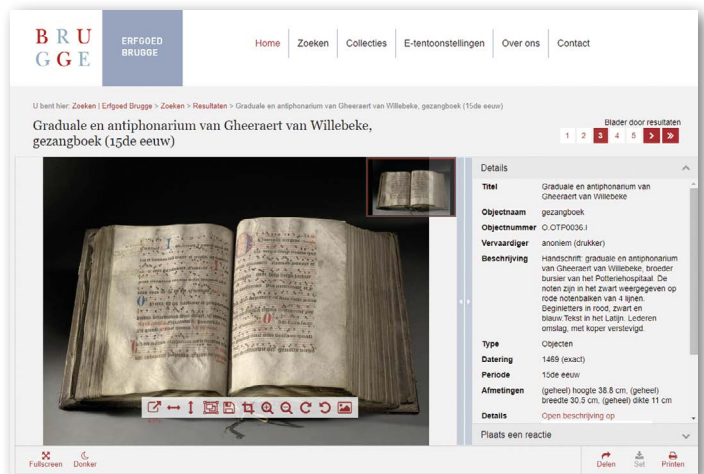 BRU
GGE
ERFGOED
BRUGGE
Home
Zoeken
Collecties
E-tentoonstellingen
Over ons
Contact
U bent hier: Zoeken | Erfgoed Brugge > Zoeken > Resultaten > Graduale en antiphonarium van Gheeraert van Willebeke, gezangboek (15de eeuw)
Graduale en antiphonarium van Gheeraert van Willebeke,
gezangboek (15de eeuw)
Blader door resultaten
1 2 3 4 5
Details
Titel Graduale en antiphonarium van
Gheeraert van Willebeke
Objectnaam gezangboek
Objectnummer O.OTP0036.I
Vervaardiger anoniem (drukker)
Beschrijving Handschrift: graduale en antiphonarium
van Gheeraert van Willebeke, broeder
bursier van het Potteriehospitaal. De
noten zijn in het zwart weergegeven op
rode notenbalken van 4 lijnen.
Beginletters in rood, zwart en
blauw.Tekst in het Latijn. Lederen
omslag, met koper verstevigd.
Type Objecten
Datering 1469 (exact)
Periode 15de eeuw
Afmetingen (geheel) hoogte 38.8 cm, (geheel)
breedte 30.5 cm, (geheel) dikte 11 cm
Details Open beschrijving op
Plaats een reactie
Fullscreen
Donker
Delen
Set
Printen